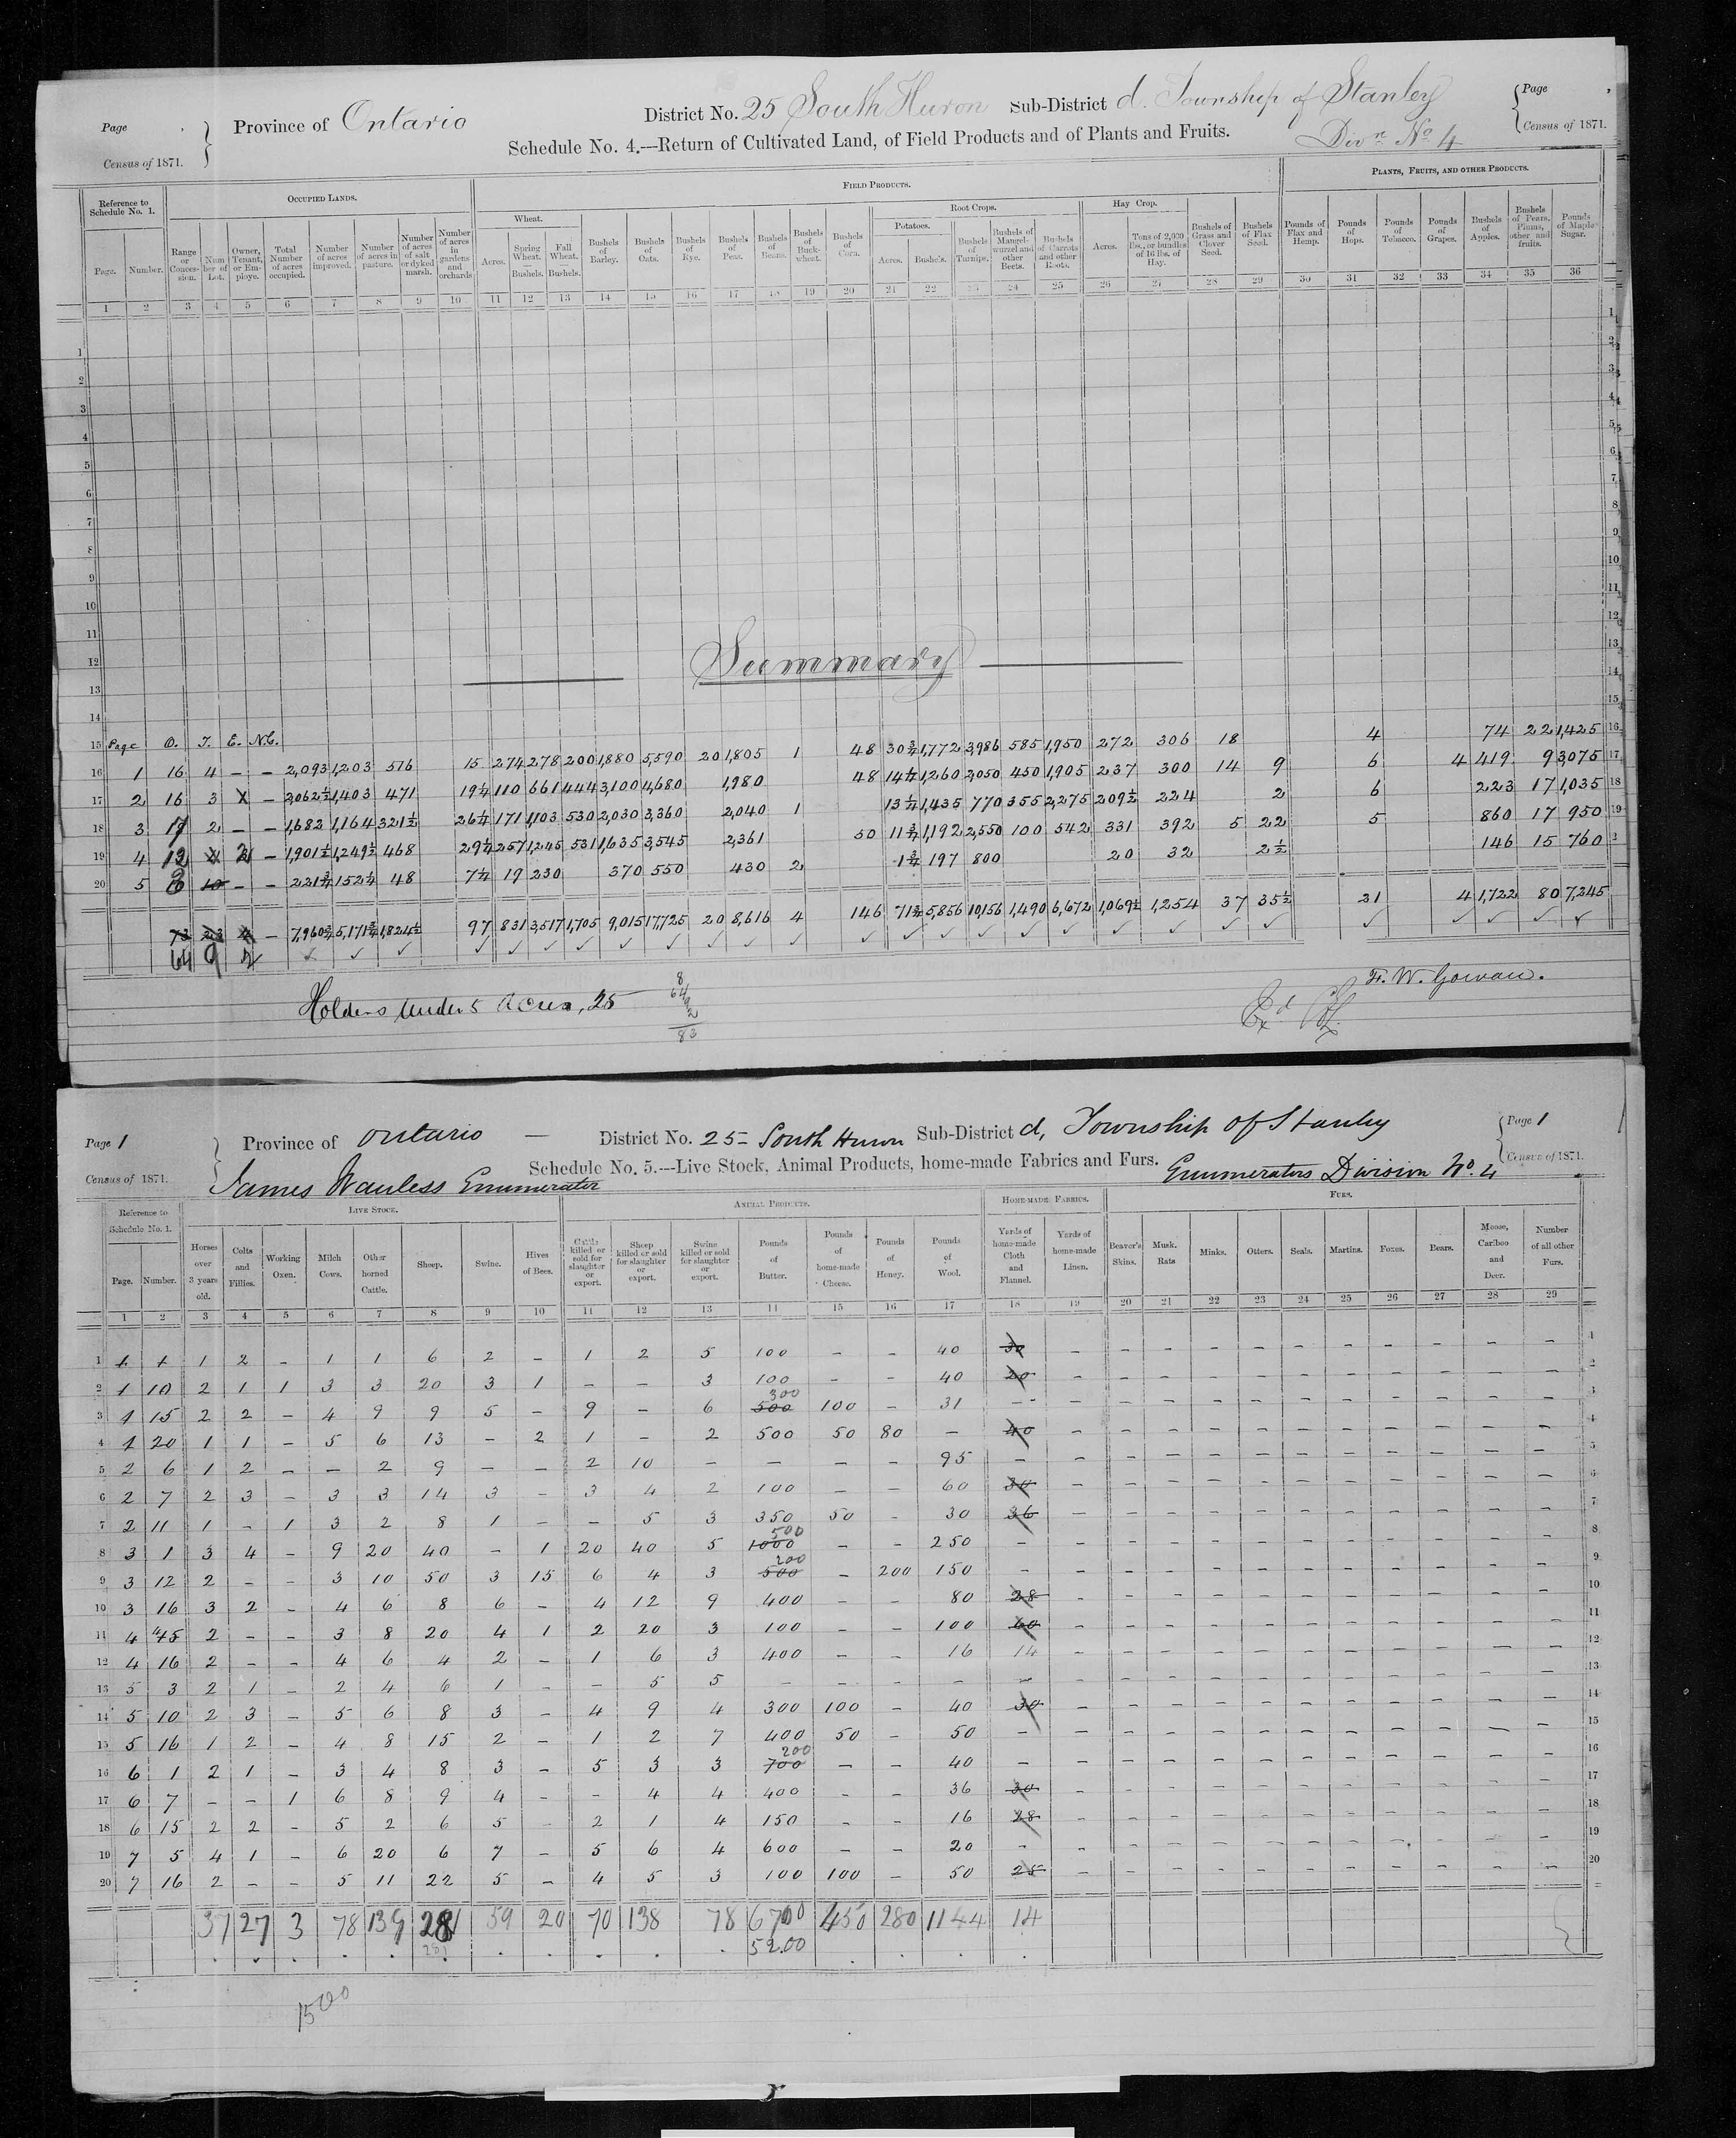 Page
Census of 1871.
Province of Ontario
District No. 25 South Huron Sub-District d. Township of Stanley
Schedule No. 4.---Return of Cultivated Land, of Field Products and of Plants and Fruits.
Divn. No. 4
Page
Census of 1871.
Reference to Schedule No. 1.
OCCUPIED LANDS.
FIELD PRODUCTS.
PLANTS, FRUITS, AND OTHER PRODUCTS.
Wheat.
Root Crops.
Potatoes.
Hay Crop.
Page.
Number.
Range or Conces-sion.
Num ber of Lot.
Owner, Tenant, or Em-ploye.
Total Number of acres occupied.
Number of acres improved.
Number of acres in pasture.
Number of acres of salt or dyked marsh.
Number of acres in gardens and orchards
Acres.
Spring Wheat. — Bushels.
Fall Wheat. — Bushels.
Bushels of Barley.
Bushels of Oats.
Bushels of Rye.
Bushels of Peas.
Bushels of Beans.
Bushels of Buck-wheat.
Bushels of Corn.
Acres.
Bushels.
Bushels of Turnips.
Bushels of Mangel-wurzel and other Beets.
Bushels of Carrots and other Roots.
Acres.
Tons of 2,000 lbs., or bundles of 16 lbs. of Hay.
Bushels of Grass and Clover Seed.
Bushels of Flax Seed.
Pounds of Flax and Hemp.
Pounds of Hops.
Pounds of Tobacco.
Pounds of Grapes.
Bushels of Apples.
Bushels of Pears, Plums, other and fruits.
Pounds of Maple Sugar.
1 2 3 4 5 6 7 8 9 10 11 12 13 14 15 16 17 18 19 20 21 22 23 24 25 26 27 28 29 30 31 32 33 34 35 36
1
2
3
4
5
6
7
8
9
10
11
12
13
14
Summary
15 Page O. T. E. N.C.
16 1 16 4 – – 2,093 1,203 576 15 274 278 200 1,880 5,590 20 1,805 1 48 30¾ 1,772 3,986 585 1,950 272 306 18 4 74 22 1,425
17 2 16 3 X – 2,062½ 1,403 471 19¼ 110 661 444 3,100 4,680 1,980 48 14¼ 1,260 2,050 450 1,905 237 300 14 9 6 4 419 9 3,075
18 3 17 2 – – 1,682 1,164 321½ 26¼ 171 1,103 530 2,030 3,360 2,040 1 13¼ 1,435 770 355 2,275 209½ 224 2 6 223 17 1,035
19 4 12 2 – 1,901½ 1,249½ 468 29¼ 257 1,245 531 1,635 3,545 2,361 50 11¾ 1,192 2,550 100 542 331 392 5 22 5 860 17 950
20 5 10 – – 221¾ 152¼ 48 7¼ 19 230 370 550 430 2 1¾ 197 800 20 32 2½ 146 15 760
73 23 4 – 7,960¾ 5,171¾ 1,824½ 97 831 3,517 1,705 9,015 17,725 20 8,616 4 146 71¾ 5,856 10,156 1,490 6,672 1,069½ 1,254 37 35½ 21 4 1,722 80 7,245
64 9 2
Holders under 5 acres, 25
8
64
9
2
83
F. W. Gowan.
Page 1
Census of 1871.
Province of Ontario — District No. 25 – South Huron Sub-District d, Township of Stanley
Schedule No. 5.---Live Stock, Animal Products, home-made Fabrics and Furs.
James Wanless Enumerator
Enumerators Division No. 4
Page 1
Census of 1871.
Reference to Schedule No. 1.
LIVE STOCK.
ANIMAL PRODUCTS.
HOME-MADE FABRICS.
FURS.
Page.
Number.
Horses over 3 years old.
Colts and Fillies.
Working Oxen.
Milch Cows.
Other horned Cattle.
Sheep.
Swine.
Hives of Bees.
Cattle killed or sold for slaughter or export.
Sheep killed or sold for slaughter or export.
Swine killed or sold for slaughter or export.
Pounds of Butter.
Pounds of home-made Cheese.
Pounds of Honey.
Pounds of Wool.
Yards of home-made Cloth and Flannel.
Yards of home-made Linen.
Beaver's Skins.
Musk. Rats
Minks.
Otters.
Seals.
Martins.
Foxes.
Bears.
Moose, Cariboo and Deer.
Number of all other Furs.
1 2 3 4 5 6 7 8 9 10 11 12 13 14 15 16 17 18 19 20 21 22 23 24 25 26 27 28 29
1 1 1 1 2 – 1 1 6 2 – 1 2 5 100 – – 40 30 – – – – – – – – – – –
2 1 10 2 1 1 3 3 20 3 1 – – 3 100 – – 40 20 – – – – – – – – – – –
3 1 15 2 2 – 4 9 9 5 – 9 – 6 500 300 100 – 31 – – – – – – – – – – – –
4 1 20 1 1 – 5 6 13 – 2 1 – 2 500 50 80 – 40 – – – – – – – – – – –
5 2 6 1 2 – – 2 9 – – 2 10 – – – – 95 – – – – – – – – – – – –
6 2 7 2 3 – 3 3 14 3 – 3 4 2 100 – – 60 30 – – – – – – – – – – –
7 2 11 1 – 1 3 2 8 1 – – 5 3 350 50 – 30 36 – – – – – – – – – – –
8 3 1 3 4 – 9 20 40 – 1 20 40 5 1000 500 – – 250 – – – – – – – – – – – –
9 3 12 2 – – 3 10 50 3 15 6 4 3 500 200 – 200 150 – – – – – – – – – – – –
10 3 16 3 2 – 4 6 8 6 – 4 12 9 400 – – 80 28 – – – – – – – – – – –
11 4 15 2 – – 3 8 20 4 1 2 20 3 100 – – 100 60 – – – – – – – – – – –
12 4 16 2 – – 4 6 4 2 – 1 6 3 400 – – 16 14 – – – – – – – – – – –
13 5 3 2 1 – 2 4 6 1 – – 5 5 – – – – – – – – – – – – – – – –
14 5 10 2 3 – 5 6 8 3 – 4 9 4 300 100 – 40 30 – – – – – – – – – – –
15 5 16 1 2 – 4 8 15 2 – 1 2 7 400 50 – 50 – – – – – – – – – – – –
16 6 1 2 1 – 3 4 8 3 – 5 3 3 700 200 – – 40 – – – – – – – – – – – –
17 6 7 – – 1 6 8 9 4 – – 4 4 400 – – 36 30 – – – – – – – – – – –
18 6 15 2 2 – 5 2 6 5 – 2 1 4 150 – – 16 28 – – – – – – – – – – –
19 7 5 4 1 – 6 20 6 7 – 5 6 4 600 – – 20 – – – – – – – – – – – –
20 7 16 2 – – 5 11 22 5 – 4 5 3 100 100 – 50 25 – – – – – – – – – – –
37 27 3 78 139 281 59 20 70 138 78 6700 450 280 1144 14
281 5200
1500